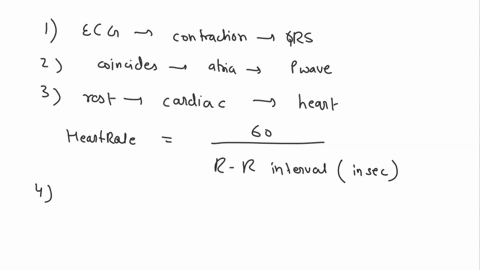 1) ECG → contraction → QRS
2) coincides → atria → P wave
3) rest → cardiac → heart
Heart Rate = 60
R-R interval (in sec)
4)